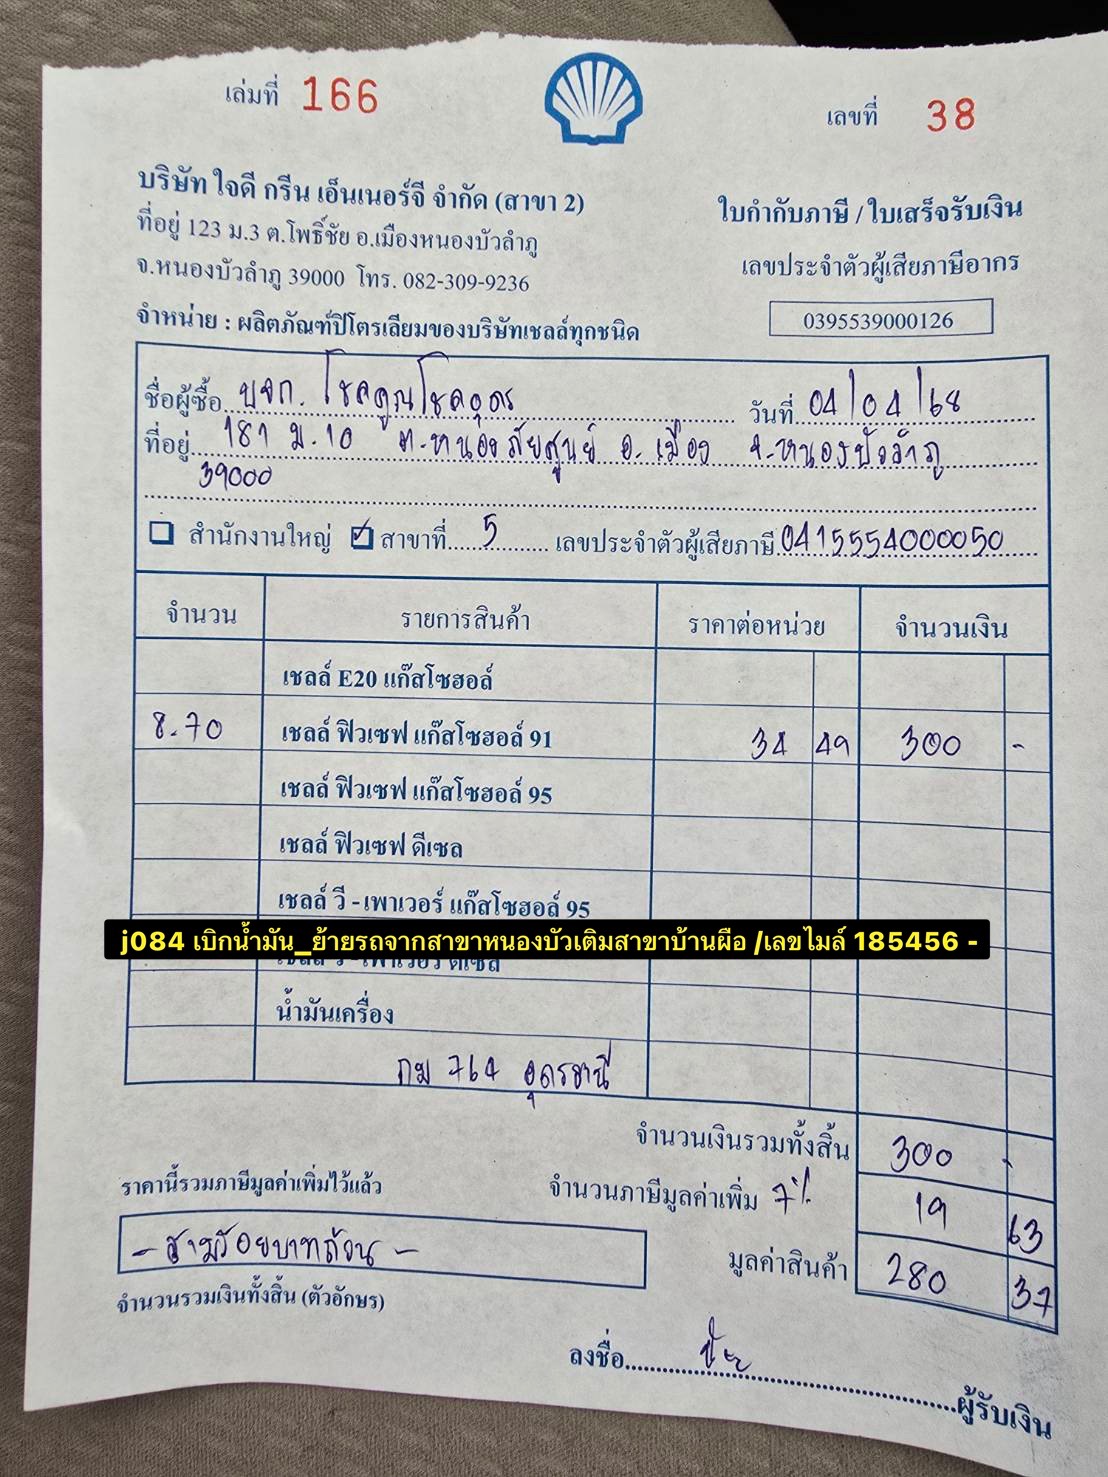 เล่มที่ 166
เลขที่ 38
บริษัท ใจดี กรีน เอ็นเนอร์จี จำกัด (สาขา 2)
ที่อยู่ 123 ม.3 ต.โพธิ์ชัย อ.เมืองหนองบัวลำภู
จ.หนองบัวลำภู 39000 โทร. 082-309-9236
จำหน่าย : ผลิตภัณฑ์ปิโตรเลียมของบริษัทเชลล์ทุกชนิด
ใบกำกับภาษี / ใบเสร็จรับเงิน
เลขประจำตัวผู้เสียภาษีอากร
0395539000126
ชื่อผู้ซื้อ บจก. โชคคูณโชคอุดร วันที่ 04/04/68
ที่อยู่ 181 ม.10 ต.หนองภัยศูนย์ อ.เมือง จ.หนองบัวลำภู
39000
สำนักงานใหญ่ ✓ สาขาที่ 5 เลขประจำตัวผู้เสียภาษี 0415554000050
จำนวน รายการสินค้า ราคาต่อหน่วย จำนวนเงิน
เชลล์ E20 แก๊สโซฮอล์
8.70 เชลล์ ฟิวเซฟ แก๊สโซฮอล์ 91 34 49 300 -
เชลล์ ฟิวเซฟ แก๊สโซฮอล์ 95
เชลล์ ฟิวเซฟ ดีเซล
เชลล์ วี - เพาเวอร์ แก๊สโซฮอล์ 95
j084 เบิกน้ำมัน_ย้ายรถจากสาขาหนองบัวเติมสาขาบ้านผือ /เลขไมล์ 185456 -
เชลล์ วี - เพาเวอร์ ดีเซล
น้ำมันเครื่อง
กม 764 อุดรธานี
จำนวนเงินรวมทั้งสิ้น 300 -
ราคานี้รวมภาษีมูลค่าเพิ่มไว้แล้ว จำนวนภาษีมูลค่าเพิ่ม 7% 19 63
- สามร้อยบาทถ้วน - มูลค่าสินค้า 280 37
จำนวนรวมเงินทั้งสิ้น (ตัวอักษร)
ลงชื่อ ผู้รับเงิน